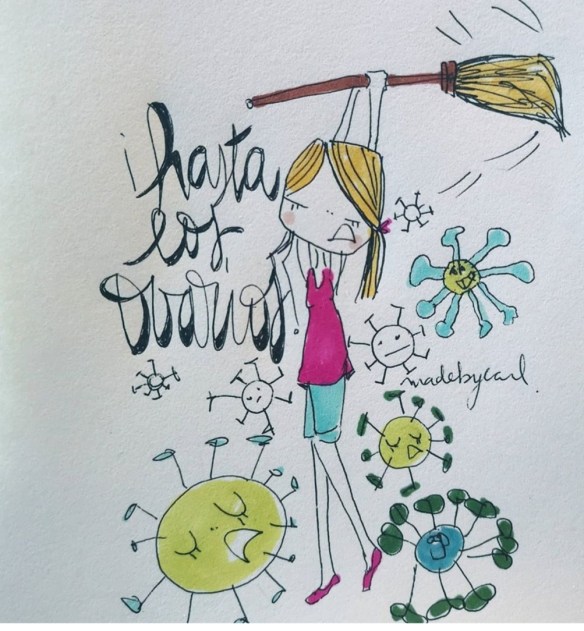 ¡hasta
los
ovarios!
madebycarl.